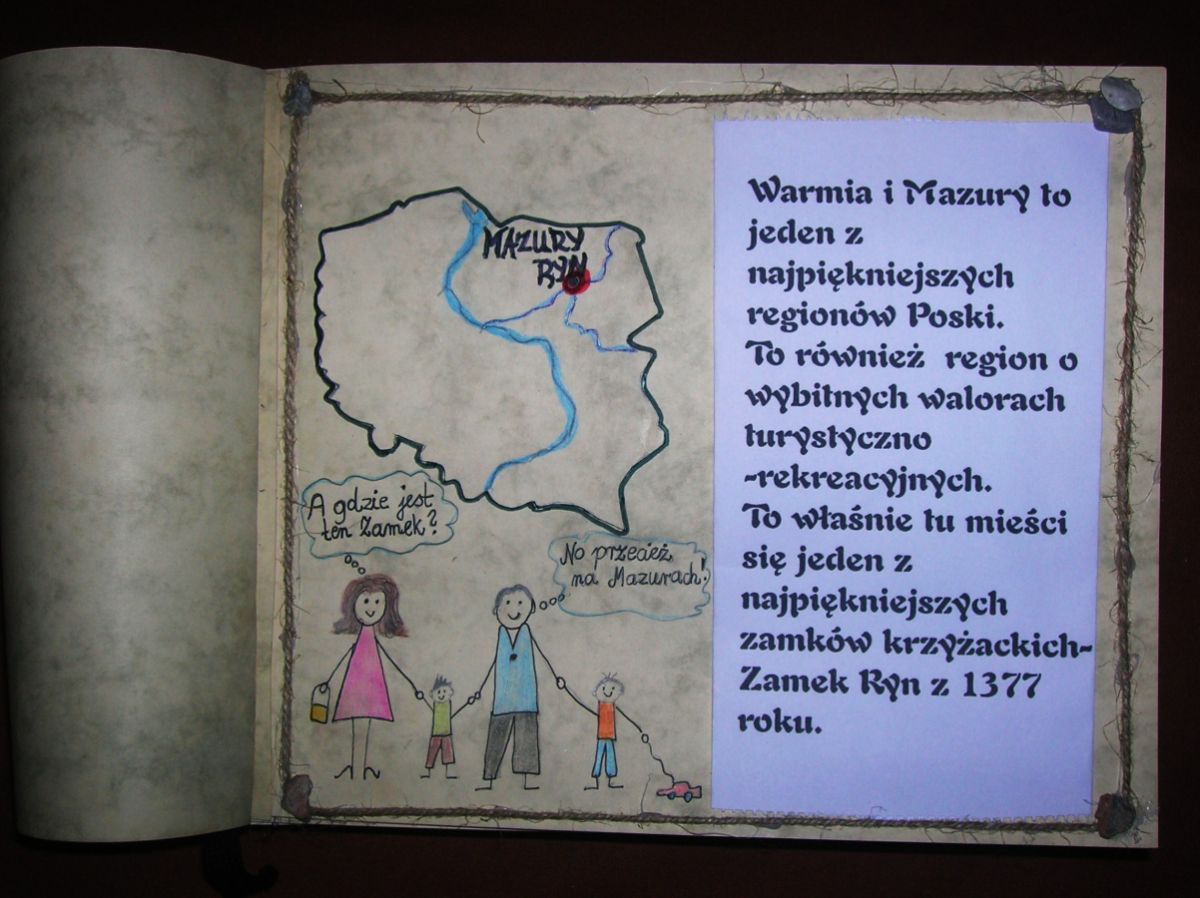 MAZURY
RYN
A gdzie jest
ten Zamek?
No przecież
na Mazurach!
Warmia i Mazury to
jeden z
najpiękniejszych
regionów Poski.
To również region o
wybitnych walorach
turystyczno
-rekreacyjnych.
To właśnie tu mieści
się jeden z
najpiękniejszych
zamków krzyżackich-
Zamek Ryn z 1377
roku.